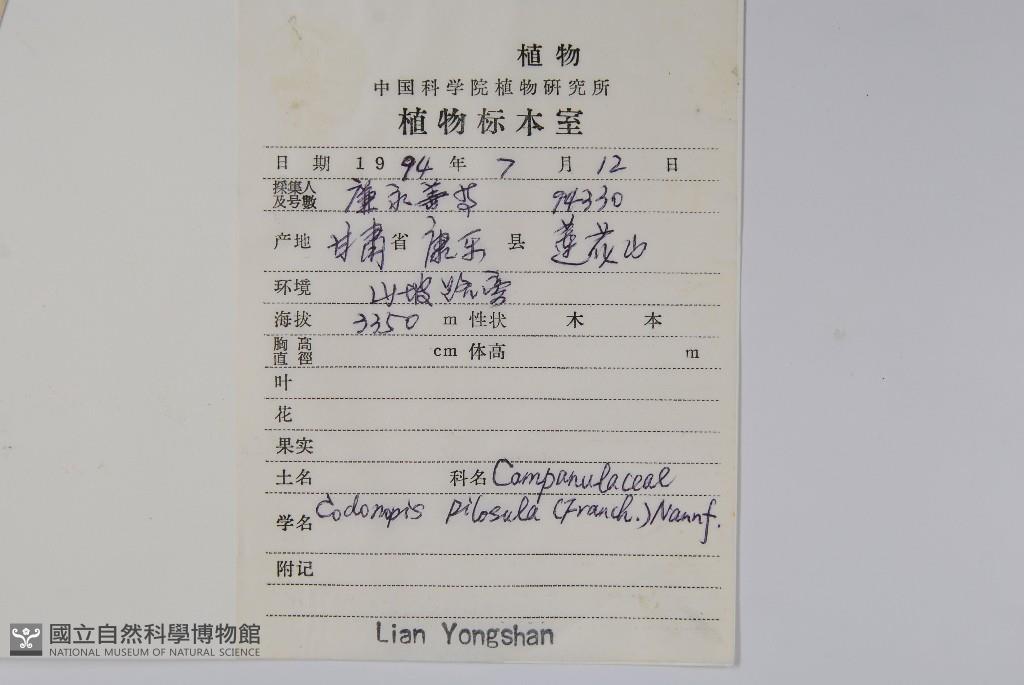 植物
中国科学院植物研究所
植物标本室
日期 1994年 7月 12日
採集人及号數 廉永善等 94330
产地 甘肃省 康乐县 莲花山
环境 山坡
海拔 3350 m 性状 木 本
胸高直徑 cm 体高 m
叶
花
果实
土名 科名 Campanulaceae
学名 Codonopis pilosula (Franch.) Nannf.
附记
Lian Yongshan
國立自然科學博物館
NATIONAL MUSEUM OF NATURAL SCIENCE